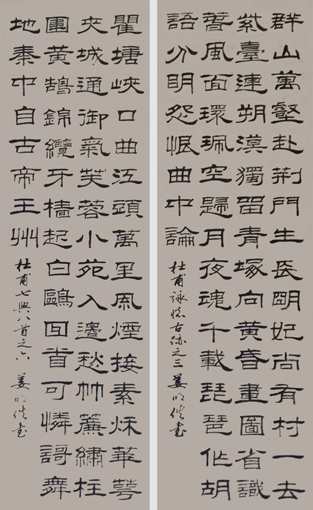 群山萬壑赴荊門生長明妃尚有村一去
紫臺連朔漠獨留青塚向黃昏畫圖省識
春風面環珮空歸月夜魂千載琵琶作胡
語分明怨恨曲中論
杜甫詠懷古跡之三 姜書
瞿塘峽口曲江頭萬里風煙接素秋華萼
夾城通御氣芙蓉小苑入邊愁簾繡柱
圍黃鵠錦纜牙檣起白鷗回首可憐謌舞
地秦中自古帝王州
杜甫興八首之六 姜書